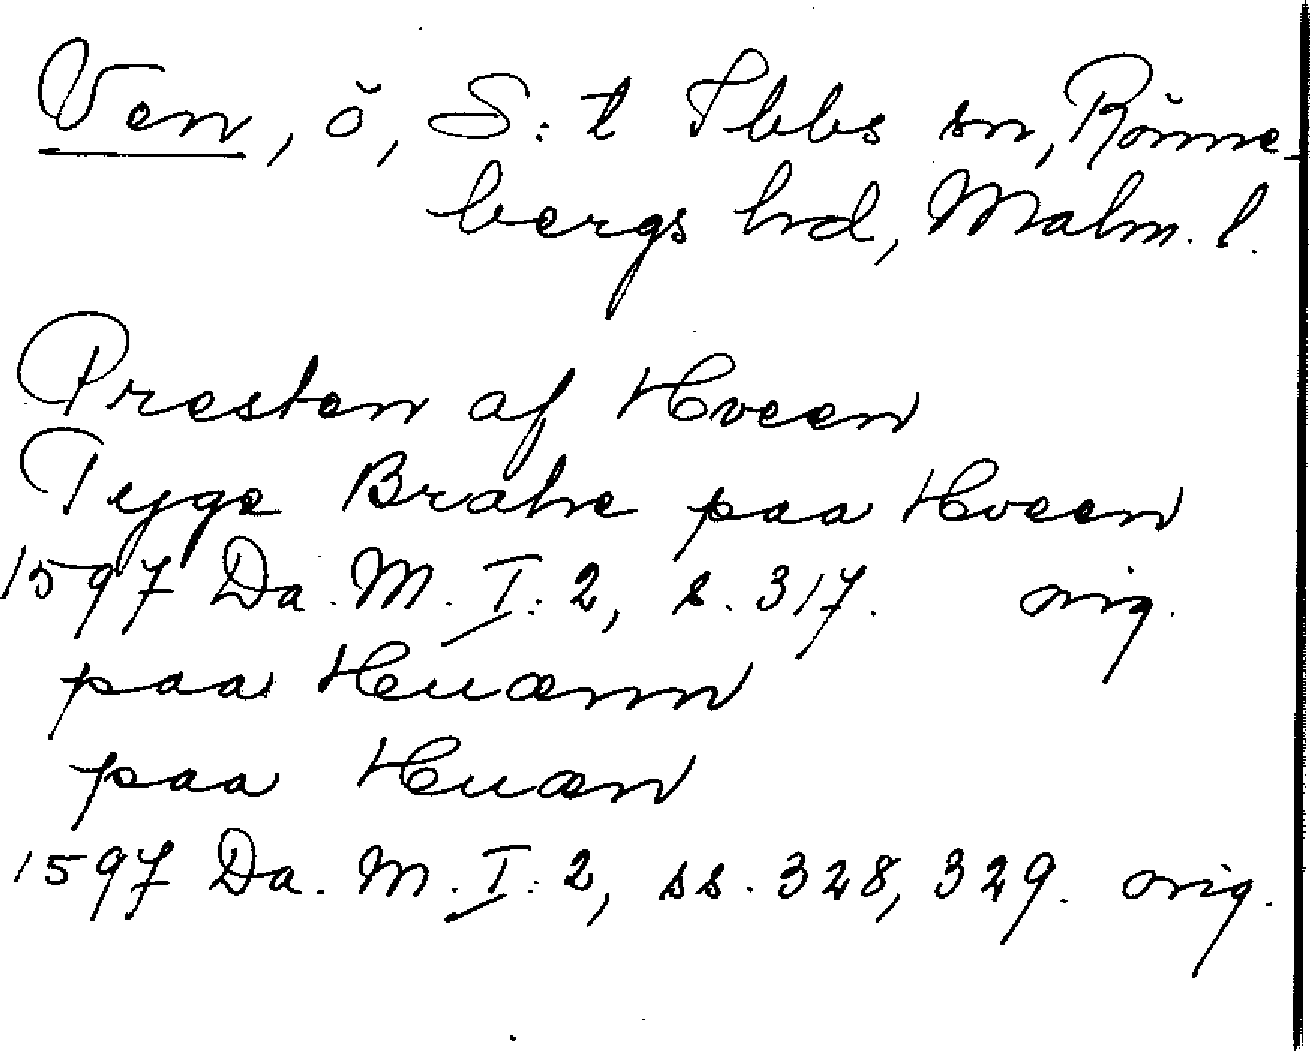 Ven, ö, S:t Ibbs sn, Rönne-
bergs hd, Malm. l.
Presten af Hveen
Tyge Brahe paa Hveen
1597 Da. M. I: 2, s. 317. orig.
paa Huænn
paa Huæn
1597 Da. M. I: 2, ss. 328, 329. orig.